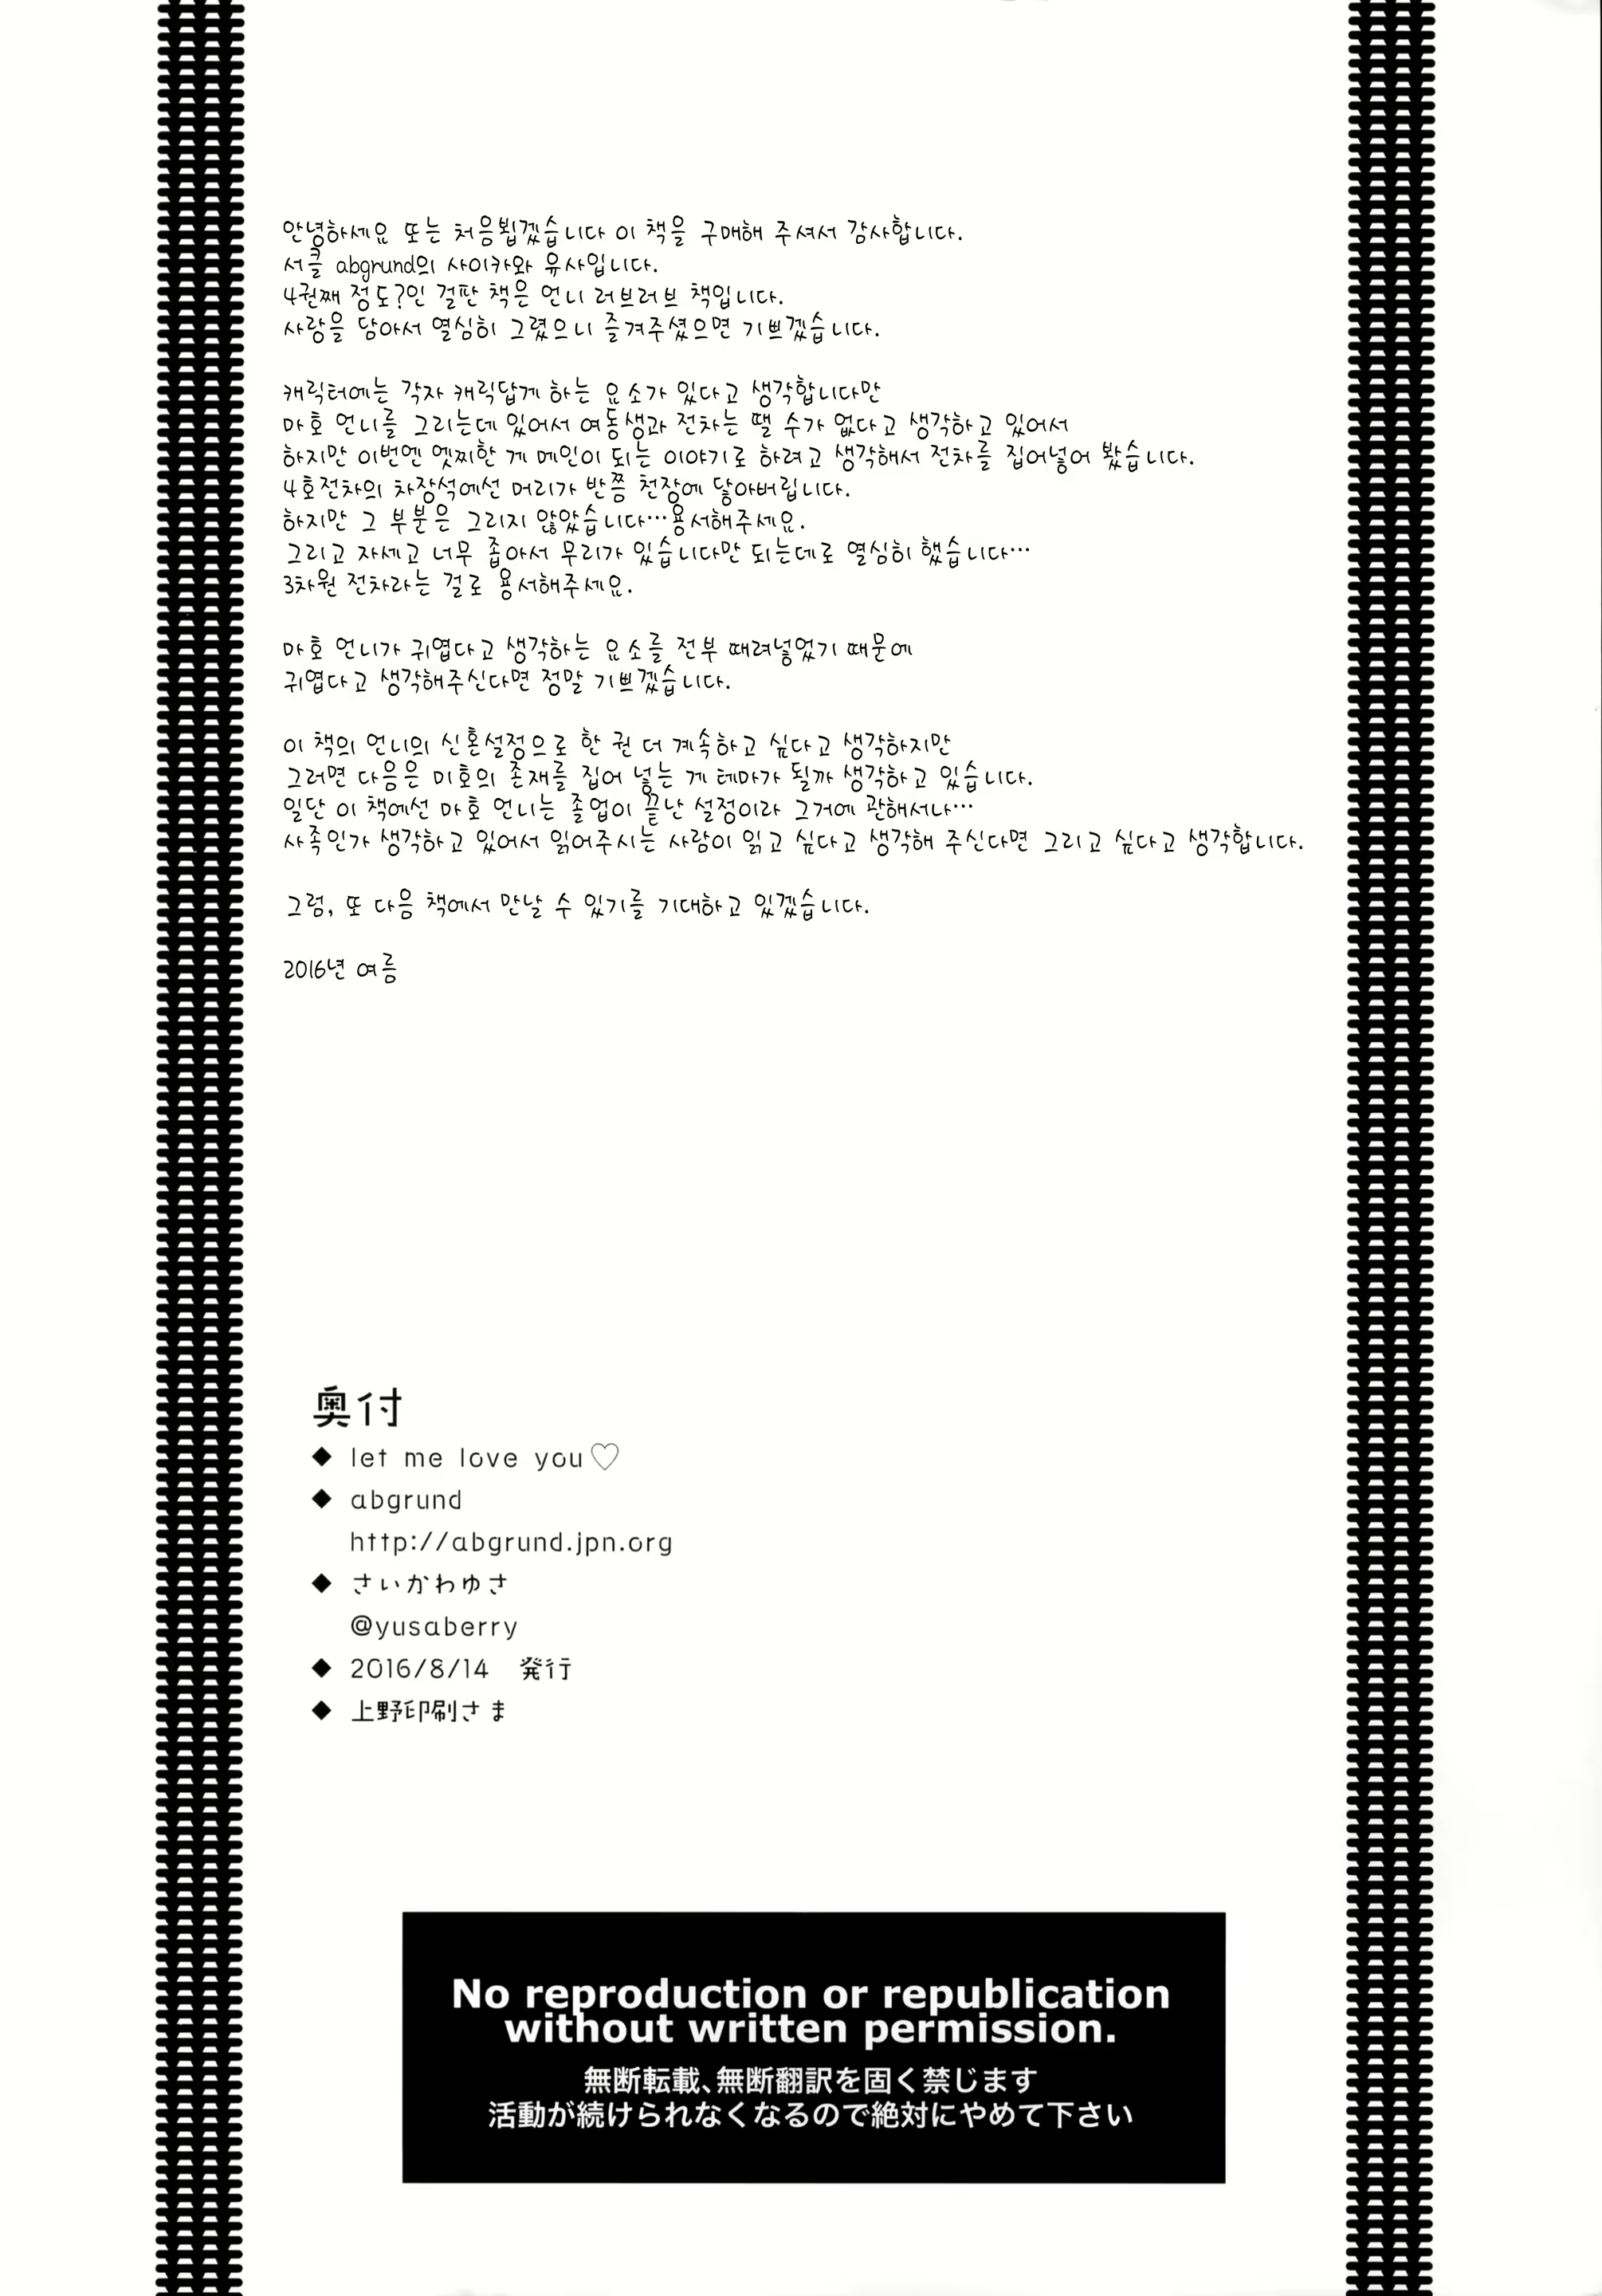 안녕하세요 또는 처음뵙겠습니다 이 책을 구매해 주셔서 감사합니다.
서클 abgrund의 사이카와 유사입니다.
4권째 정도?인 걸판 책은 언니 러브러브 책입니다.
사랑을 담아서 열심히 그렸으니 즐겨주셨으면 기쁘겠습니다.
캐릭터에는 각자 캐릭답게 하는 요소가 있다고 생각합니다만
마호 언니를 그리는데 있어서 여동생과 전차는 땔 수가 없다고 생각하고 있어서
하지만 이번엔 엣찌한 게 메인이 되는 이야기로 하려고 생각해서 전차를 집어넣어 봤습니다.
4호전차의 차장석에선 머리가 반쯤 천장에 닿아버립니다.
하지만 그 부분은 그리지 않았습니다…용서해주세요.
그리고 자세고 너무 좁아서 무리가 있습니다만 되는데로 열심히 했습니다…
3차원 전차라는 걸로 용서해주세요.
마호 언니가 귀엽다고 생각하는 요소를 전부 때려넣었기 때문에
귀엽다고 생각해주신다면 정말 기쁘겠습니다.
이 책의 언니의 신혼설정으로 한 권 더 계속하고 싶다고 생각하지만
그러면 다음은 미호의 존재를 집어 넣는 게 테마가 될까 생각하고 있습니다.
일단 이 책에선 마호 언니는 졸업이 끝난 설정이라 그거에 관해서나…
사족인가 생각하고 있어서 읽어주시는 사람이 읽고 싶다고 생각해 주신다면 그리고 싶다고 생각합니다.
그럼, 또 다음 책에서 만날 수 있기를 기대하고 있겠습니다.
2016년 여름
奥付
◆ let me love you♡
◆ abgrund
http://abgrund.jpn.org
◆ さいかわゆさ
@yusaberry
◆ 2016/8/14 発行
◆ 上野印刷さま
No reproduction or republication
without written permission.
無断転載、無断翻訳を固く禁じます
活動が続けられなくなるので絶対にやめて下さい